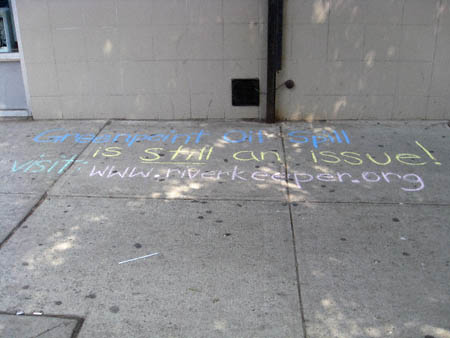 Greenpoint Oil Spill
is still an issue!
VISIT: www.riverkeeper.org